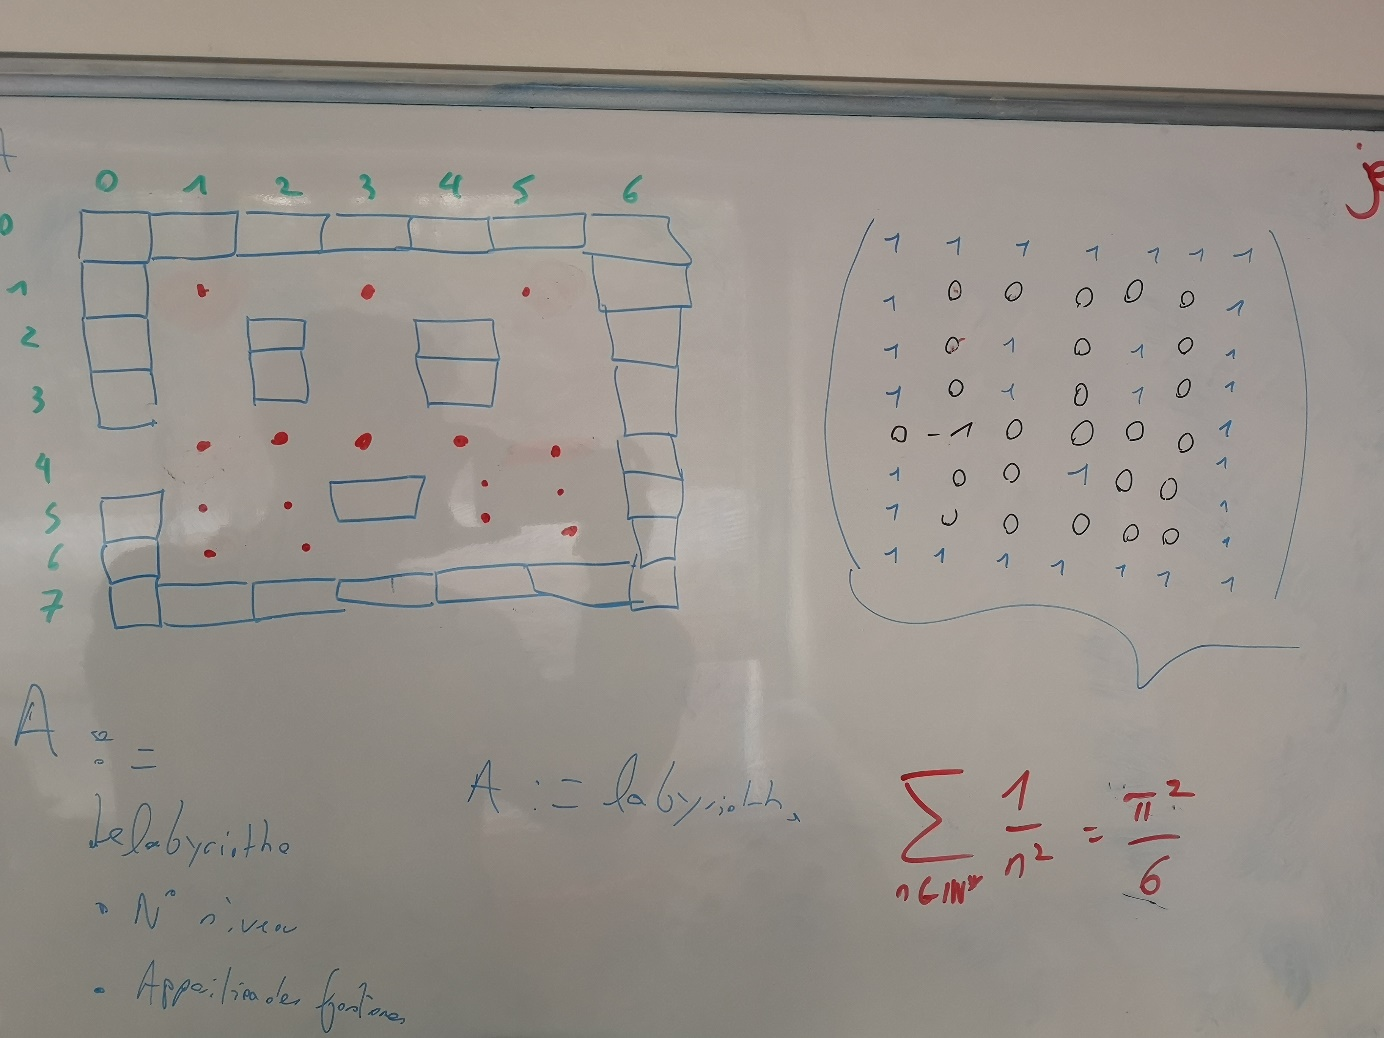 0 1 2 3 4 5 6
0
1
2
3
4
5
6
7
1 1 1 1 1 1 1
1 0 0 0 0 0 1
1 0 1 0 1 0 1
1 0 1 0 1 0 1
0 -1 0 0 0 0 1
1 0 0 1 0 0 1
1 0 0 0 0 0 1
1 1 1 1 1 1 1
je
A :=
Le labyrinthe
• N° niveau
• des fantômes
A := labyrinthe
∑ n∈ℕ* 1/n² = π²/6